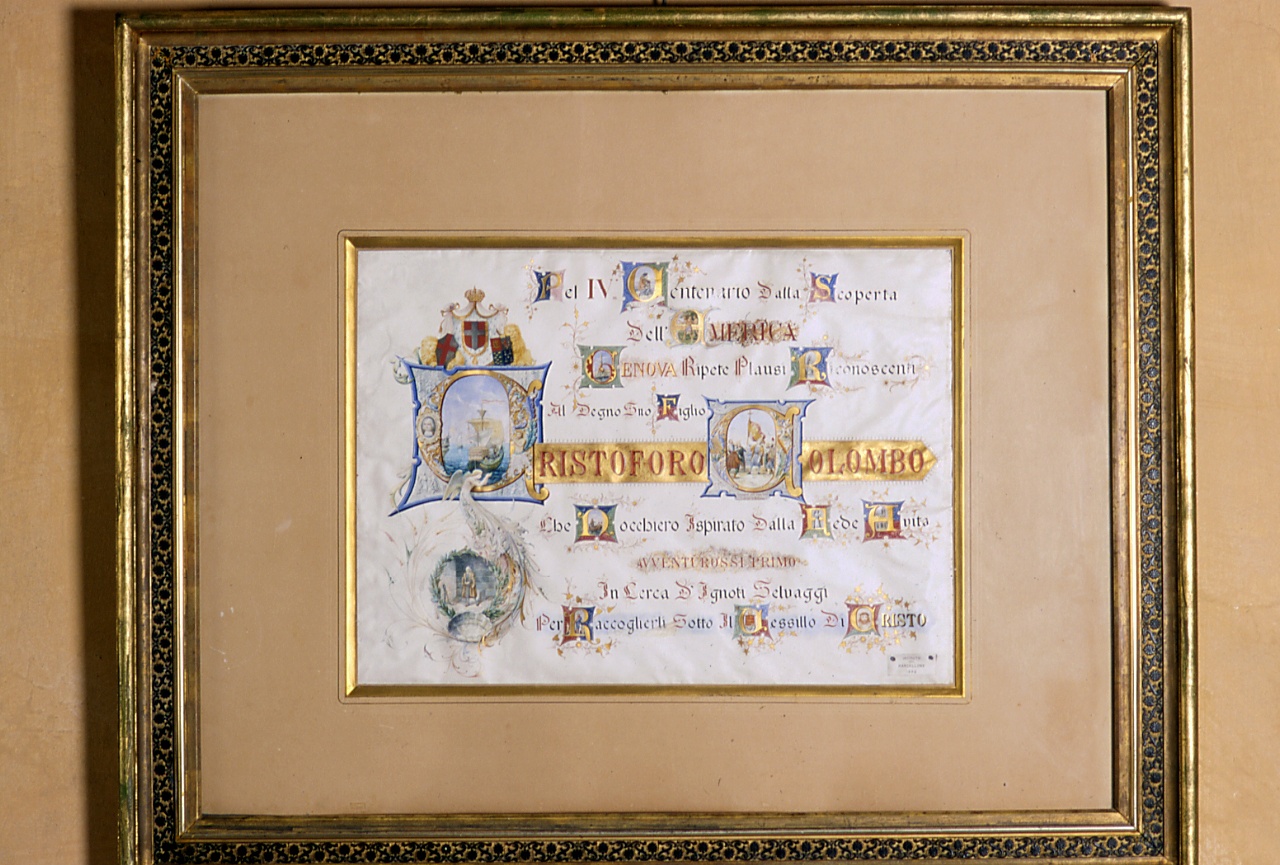 Pel IV Centenario Dalla Scoperta
Dell' AMERICA
GENOVA Ripete Plausi Riconoscenti
Al Degno Suo Figlio
CRISTOFORO COLOMBO
Che Nocchiero Ispirato Dalla Fede Avita
AVVENTUROSSI PRIMO
In Cerca D'Ignoti Selvaggi
Per Raccoglierli Sotto Il Vessillo Di CRISTO